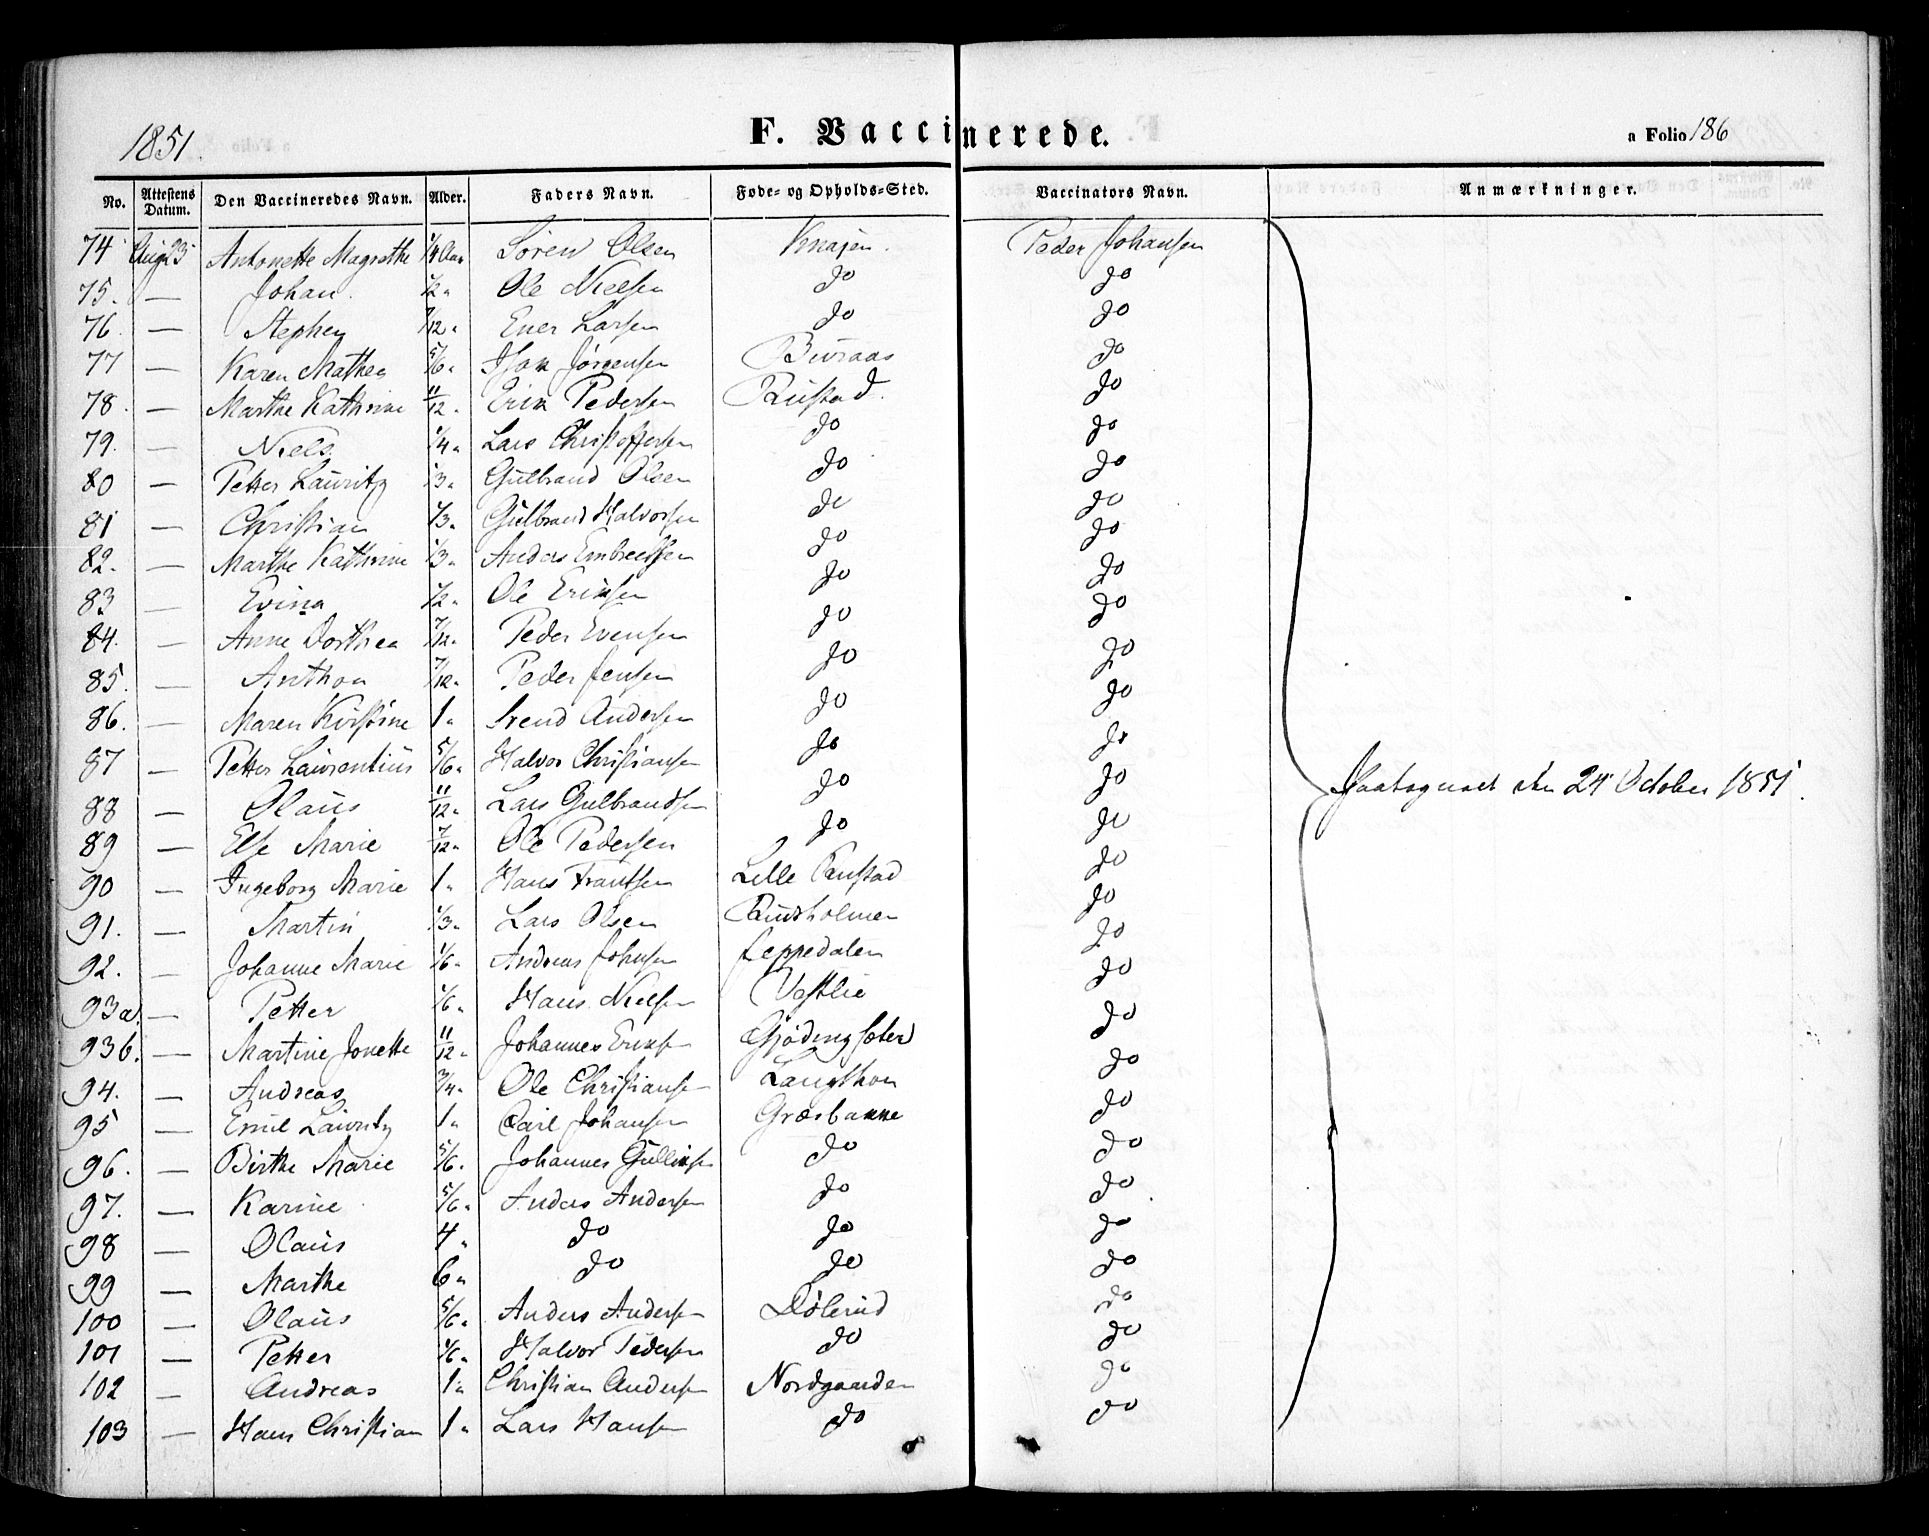 1851.
F. Vaccinerede.
a Folio 186
No. Attestens Datum. Den Vaccineredes Navn. Alder. Faders Navn. Føde- og Opholds-Sted. Vaccinators Navn. Anmærkninger.
74 Aug 23 Antonette Magrethe 1/4 Aar Søren Olsen Knapen. Peder Johansen
75. — Johan. 1/2 " Ole Nielsen do do
76. — Stephen 7/12 " Ener Larsen do do
77 — Karen Mathea 5/6 " Isak Jørgensen Buraas do
78. — Marthe Kathrine 11/12 " Erik Pedersen Rustad. do
79. — Niels 1/4 " Lars Christoffersen do do
80 — Petter Lauritz 1/3 " Gulbrand Olsen do do
81 — Christian 1/3 " Gulbrand Halvorsen do do
82. — Marthe Kathrine 1/3 " Anders Embretsen do do
83 — Evina 1/2 " Ole Eriksen do do
84. — Anne Dorthea 7/12 " Peder Evensen do do
85. — Anthon 7/12 " Peder Jensen do do
86. — Maren Kirstine 1 " Svend Andersen do do
87 — Petter Laurentius 5/6 " Halvor Christiansen do do
88 — Olaus 11/12 " Lars Gulbrandsen do do Paategnet den 24 October 1851.
89 — Else Marie 7/12 " Ole Pedersen do do
90 — Ingeborg Marie 1 " Hans Frantsen Lille Rustad do
91. — Martin 1/3 " Lars Olsen Rudsholmen do
92. — Johanne Marie 1/6 " Andreas Johnsen Jeppedalen do
93a. — Petter 1/6 " Hans Nielsen Vestlie do
93b. — Martine Jonette 11/12 " Johannes Eriksen Gjødingsæter do
94. — Andreas 3/4 " Ole Christiansen Langthon do
95 — Emil Lauritz 1 " Carl Johansen Græsbakke do
96. — Birthe Marie 5/6 " Johannes Gulliksen do do
97. — Karine 5/6 " Anders Andersen do do
98 — Olaus 4 " do do do
99 — Marthe 6 " do do do
100 — Olaus 5/6 " Anders Andersen Dølerud do
101 — Petter 1/6 " Halvor Pedersen do do
102 — Andreas 1 " Christian Andersen Nordgaarden do
103 — Hans Christian 1 " Lars Hansen do do